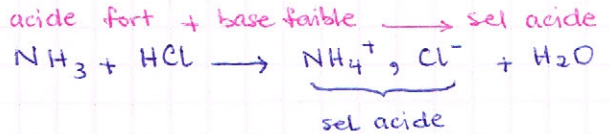 acide fort + base faible ⟶ sel acide
NH₃ + HCl ⟶ NH₄⁺, Cl⁻ + H₂O
sel acide